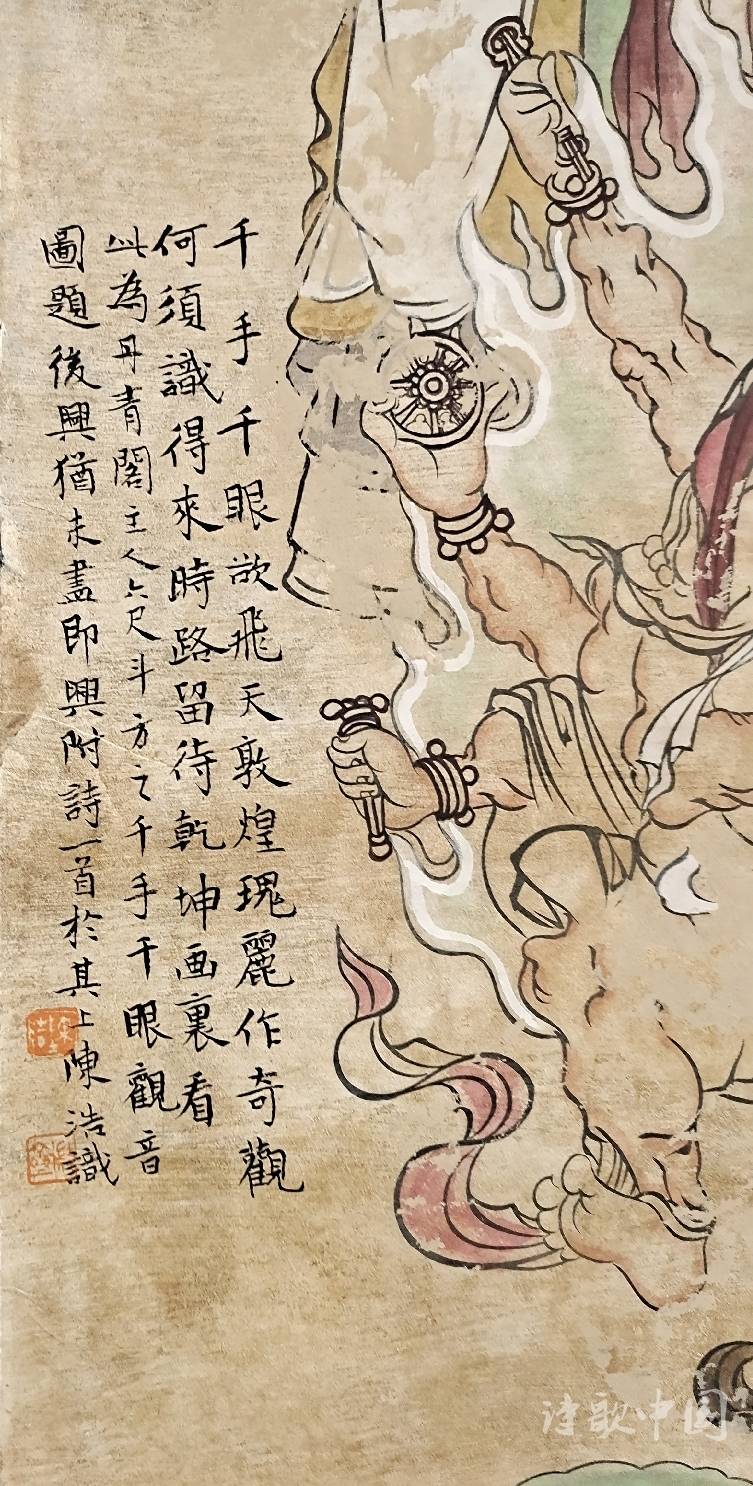 千手千眼欲飛天敦煌瑰麗作奇觀
何須識得來時路留待乾坤画裏看
此為丹青閣主人六尺斗方之千手千眼觀音
圖題後興猶未盡即興附詩一首於其上陳浩識
诗歌中国